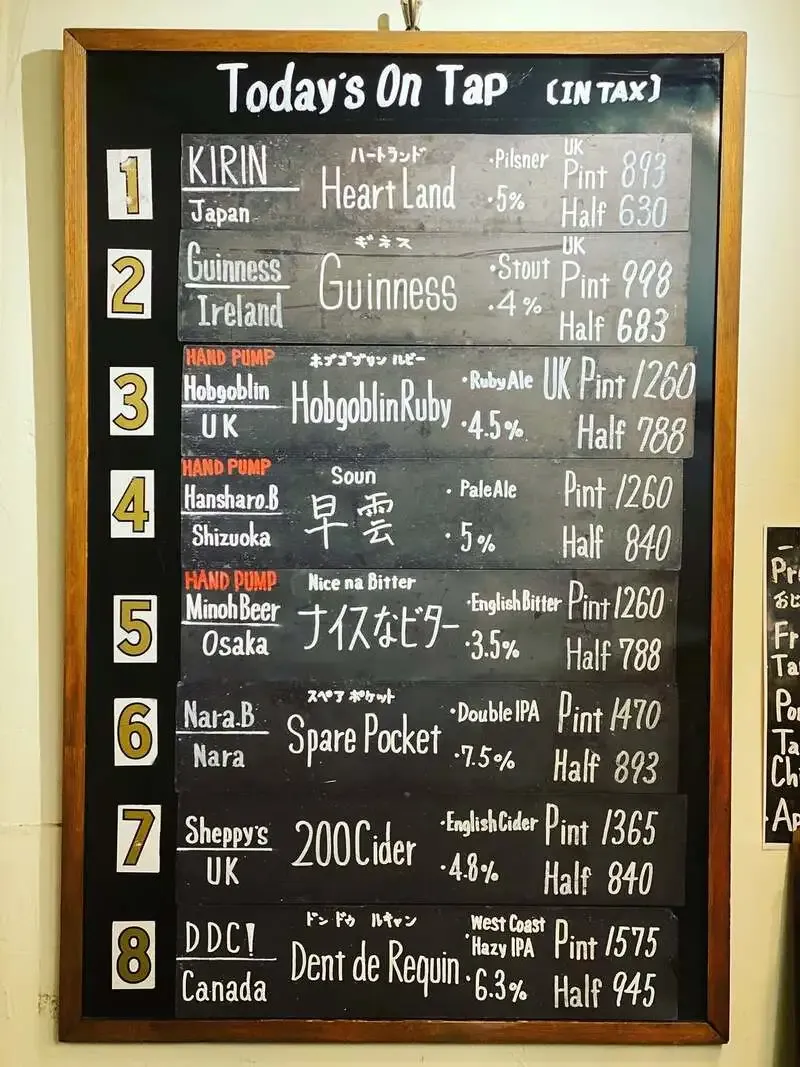 Today's On Tap (IN TAX)
1
KIRIN
Japan
ハートランド
HeartLand
・Pilsner
・5%
UK
Pint 893
Half 630
2
Guinness
Ireland
ギネス
Guinness
・Stout
・4%
UK
Pint 998
Half 683
3
HAND PUMP
Hobgoblin
UK
ホブゴブリン ルビー
HobgoblinRuby
・Ruby Ale
・4.5%
UK Pint 1260
Half 788
4
HAND PUMP
Hansharo.B
Shizuoka
Soun
早雲
・PaleAle
・5%
Pint 1260
Half 840
5
HAND PUMP
MinohBeer
Osaka
Nice na Bitter
ナイスなビター
・English Bitter
・3.5%
Pint 1260
Half 788
6
Nara.B
Nara
スペア ポケット
Spare Pocket
・Double IPA
・7.5%
Pint 1470
Half 893
7
Sheppy's
UK
200Cider
・English Cider
・4.8%
Pint 1365
Half 840
8
DDC!
Canada
ドン ドゥ ルキャン
Dent de Requin
・West Coast
Hazy IPA
・6.3%
Pint 1575
Half 945